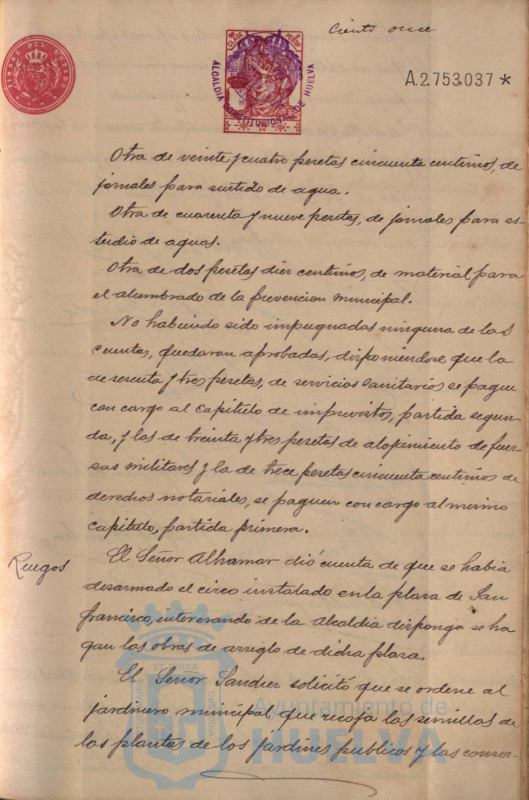 Ciento once
A.2.753.037 *
TIMBRE DEL ESTADO
ALCALDIA CONSTITUCIONAL DE HUELVA
Otra de veinte y cuatro pesetas cincuenta centimos, de
jornales para surtido de agua.
Otra de cuarenta y nueve pesetas, de jornales para es-
tudio de aguas.
Otra de dos pesetas diez centimos, de material para
el alumbrado de la prevencion municipal.
No habiendo sido impugnadas ninguna de las
cuentas, quedaron aprobadas, disponiendose que la
de sesenta y tres pesetas, de servicios sanitarios se pague
con cargo al capitulo de imprevistos, partida segun-
da, y las de treinta y tres pesetas de alojamiento de fuer-
sas militares y la de trece pesetas cincuenta centimos de
derechos notariales, se paguen con cargo al mismo
capitulo, partida primera.
Ruegos
El Señor Alhamar dió cuenta de que se habia
desarmado el circo instalado en la plaza de San
Francisco, interesando de la Alcaldia disponga se ha
gan las obras de arreglo de dicha plaza.
El Señor solicitó que se ordene al
jardinero municipal que recoja las semillas de
las plantas de los jardines publicos y las conser-
Ayuntamiento de
HUELVA